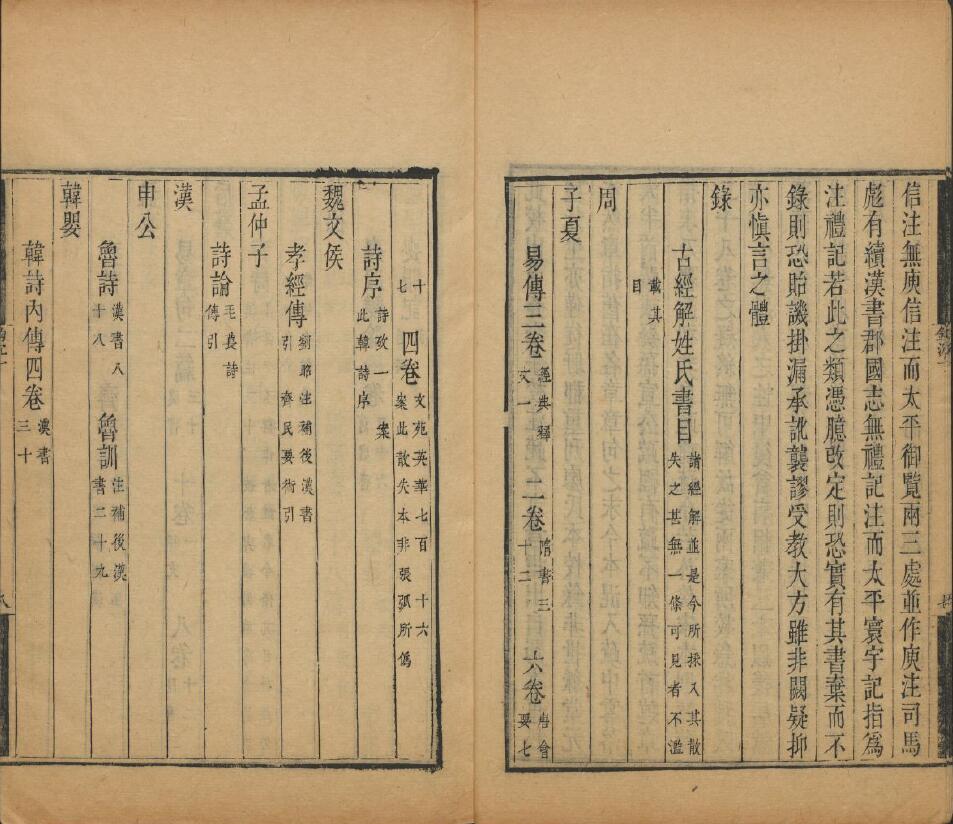 信注無庾信注而太平御覽兩三處並作庾注司馬
彪有續漢書郡國志無禮記注而太平寰宇記指為
注禮記若此之類憑臆改定則恐實有其書棄而不
錄則恐貽譏掛漏承訛襲謬受教大方雖非闕疑抑
亦愼言之體
錄
古經解姓氏書目 諸經解並是今所採入其散
失之甚無一條可見者不濫
載其
目
周
子夏
易傳三卷 經典釋
文一 二卷 隋書三
十二 六卷 唐會
要七
十
七 四卷 文苑英華七百一十六
案此散失本非張弧所僞
詩序 詩攷一案
此韓詩序
魏文侯
孝經傳 劉昭注補後漢書
引 齊民要術引
孟仲子
詩論 毛萇詩
傳引
漢
申公
魯詩 漢書八
十八 魯訓 注補後漢
書二十九
韓嬰
韓詩內傳四卷 漢書
三十